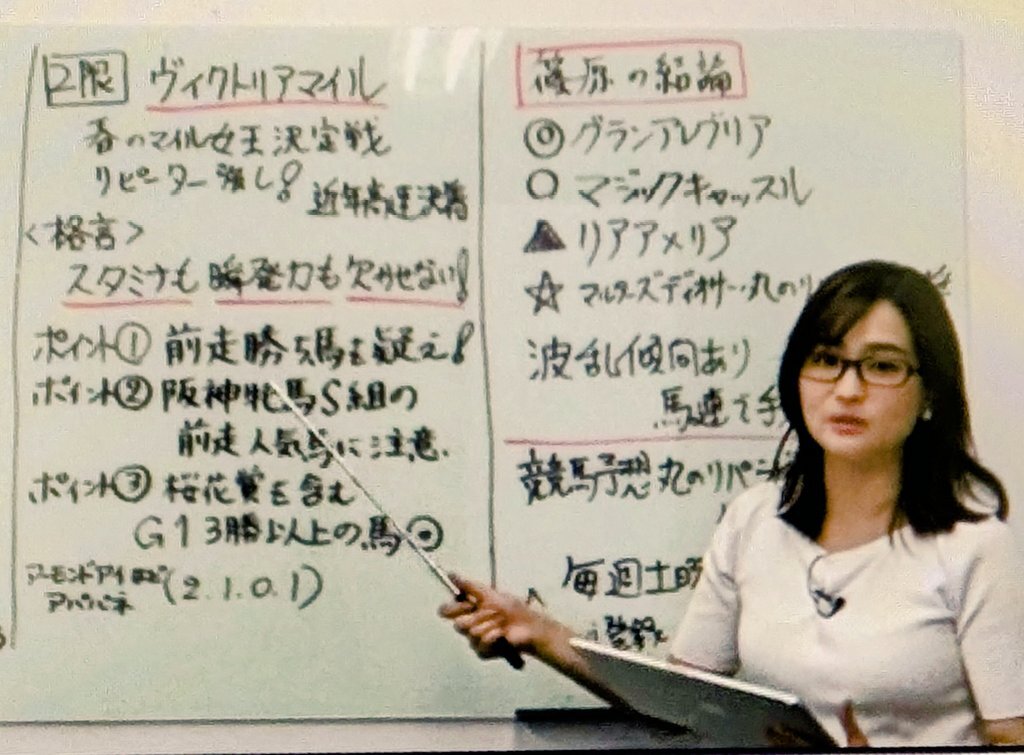 2限 ヴィクトリアマイル
春のマイル女王決定戦
リピーター強し!
近年高速決着
<格言>
スタミナも瞬発力も欠かせない!
ポイント① 前走勝ち馬を疑え!
ポイント② 阪神牝馬S組の
前走人気馬に注意.
ポイント③ 桜花賞を含む
G1 3勝以上の馬◎
アーモンドアイ
アパパネ
(2.1.0.1)
篠原の結論
◎ グランアレグリア
○ マジックキャッスル
▲ リアアメリア
☆ マルターズディオサ…丸のり
波乱傾向あり
馬連で手
競馬予想丸のりパ
毎週土
登録